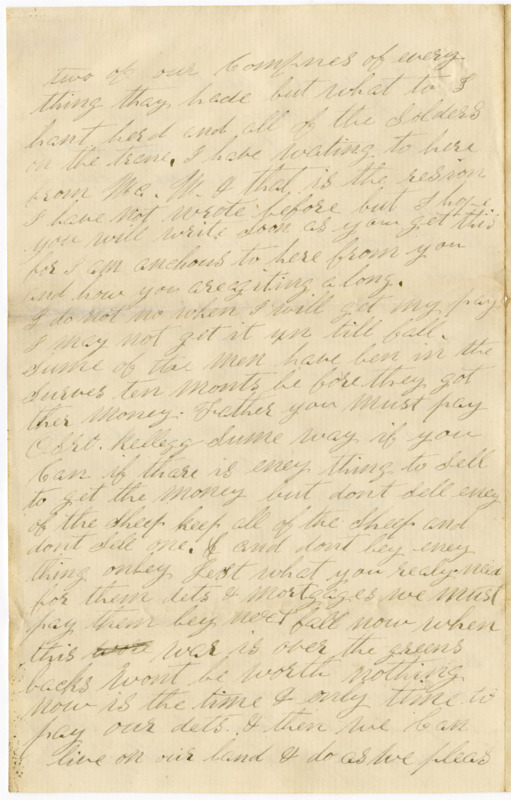 two of our Compnes of every
thing thay hade but what to I
hant herd and all of the Solders
on the trane. I have Wating to here
from Ma. M. & that is the resion
I have not wrote before but I hope
you will write Soon as you get this
for I am anchous to here from you
and how you are agiting a long.
I do not no when I will get my pay
I may not get it un till fall.
Sume of the men have ben in the
Surves ten monts be fore they got
ther money. Father you must pay
Kellegg Sume way if you
Can if thare is eney thing to Sell
to get the money but dont Sell eney
of the Sheep keep all of the Sheep and
dont Sell one. & and dont bey eney
thing onley Jest what you realy need
for them dets & mortgages we must
pay them bey next fall now when
this war is over the greens
backs Wont be worth nothing
now is the time & only time to
pay our dets. & then we Can
live on our land & do as we pleas